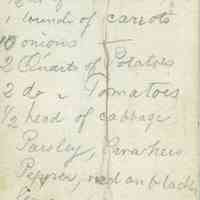 1 bunch of carrots
10 onions
2 Quarts of Potatoes
2 do " Tomatoes
1/2 head of cabbage
Parsley,
Pepper, red or black